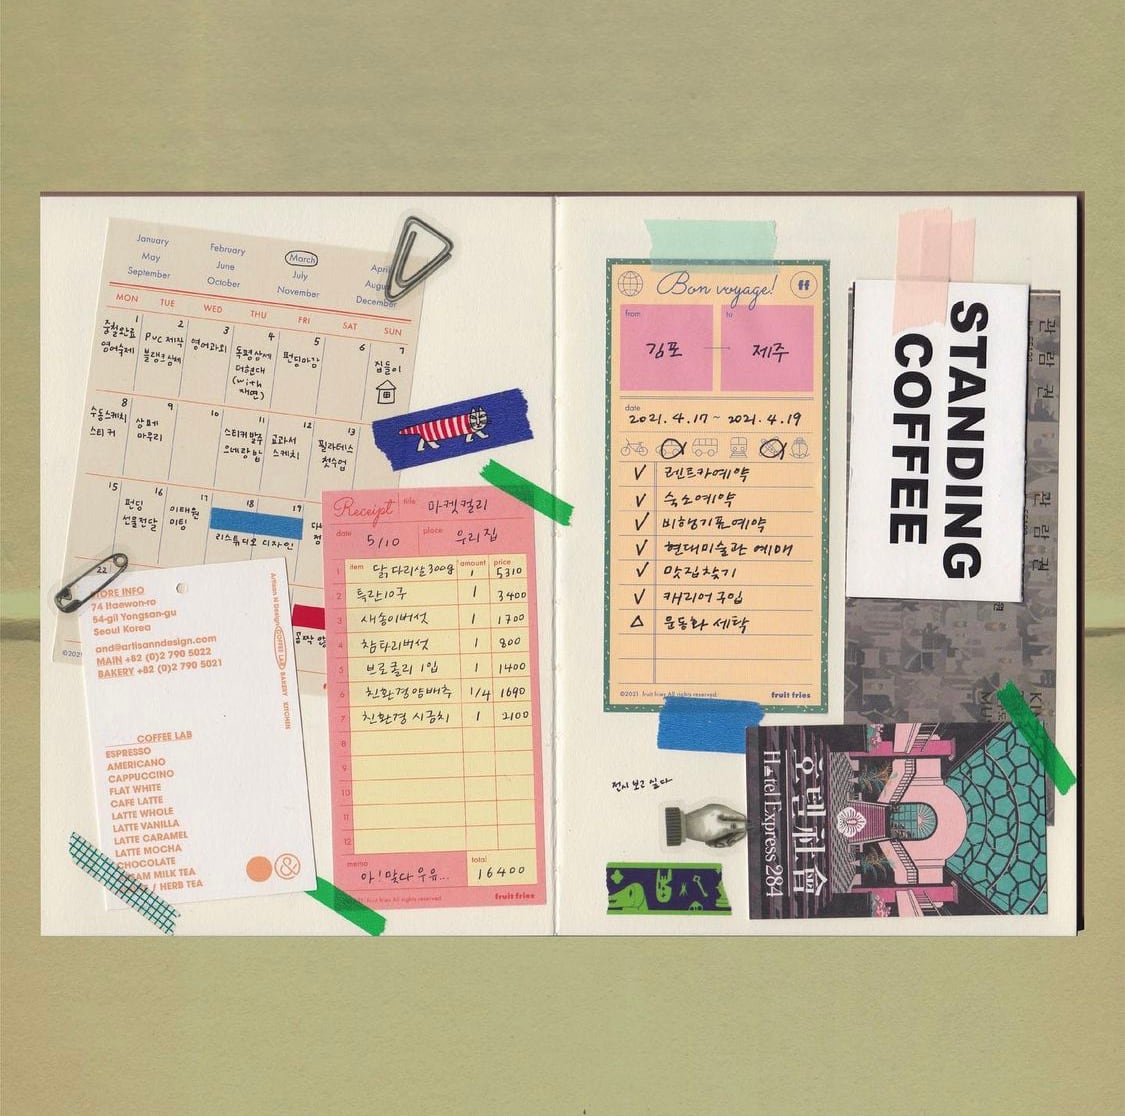 January
February
March
April
May
June
July
September
October
November
December
MON TUE WED THU FRI SAT SUN
1 2 3 4 5 6 7
영어숙제
PVC 제작
영어과외
독평상세
더현대
(with
재면)
펀딩마감
집들이
8 9 10 11 12 13
수동스케치
스티커
상페
마무리
스티커발수
오네랑밥
교과서
스케치
필라테스
첫수업
15 16 17 18 19
펀딩
선물전달
이태원
미팅
디자인
22
©202
STORE INFO
74 Itaewon-ro
54-gil Yongsan-gu
Seoul Korea
and@artisanndesign.com
MAIN +82 (0)2 790 5022
BAKERY +82 (0)2 790 5021
Artisan N Design COFFEE LAB BAKERY KITCHEN
COFFEE LAB
ESPRESSO
AMERICANO
CAPPUCCINO
FLAT WHITE
CAFE LATTE
LATTE WHOLE
LATTE VANILLA
LATTE CARAMEL
LATTE MOCHA
CHOCOLATE
MILK TEA
/ HERB TEA
&
Receipt title 마켓컬리
date 5/10 place 우리집
item amount price
1 닭다리살 300g 1 5310
2 특란10구 1 3400
3 새송이버섯 1 1700
4 참타리버섯 1 800
5 브로콜리 1입 1 1400
6 친환경양배추 1/4 1690
7 친환경 시금치 1 2100
8
9
10
11
12
memo 아! 맞다 우유... total 16400
2021. fruit fries All rights reserved. fruit fries
Bon voyage! ff
from 김포 to 제주
date
2021. 4. 17 ~ 2021. 4. 19
✓ 렌트카예약
✓ 숙소예약
✓ 비행기표예약
✓ 현대미술관 예매
✓ 맛집찾기
✓ 캐리어구입
△ 운동화 세탁
©2021. fruit fries All rights reserved. fruit fries
STANDING
COFFEE
관람권
관람권
전시 보고 싶다
호텔사회
Hotel Express 284